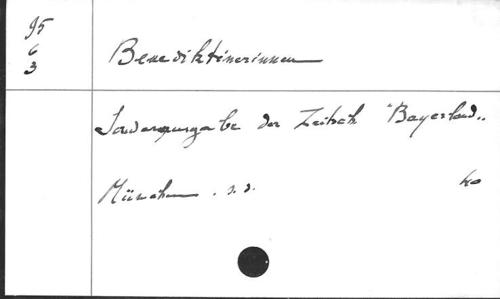 95
6
3
Benediktinerinnen
Sonderausgabe der Zeitsch "Bayerland"
München . s. d. 4o